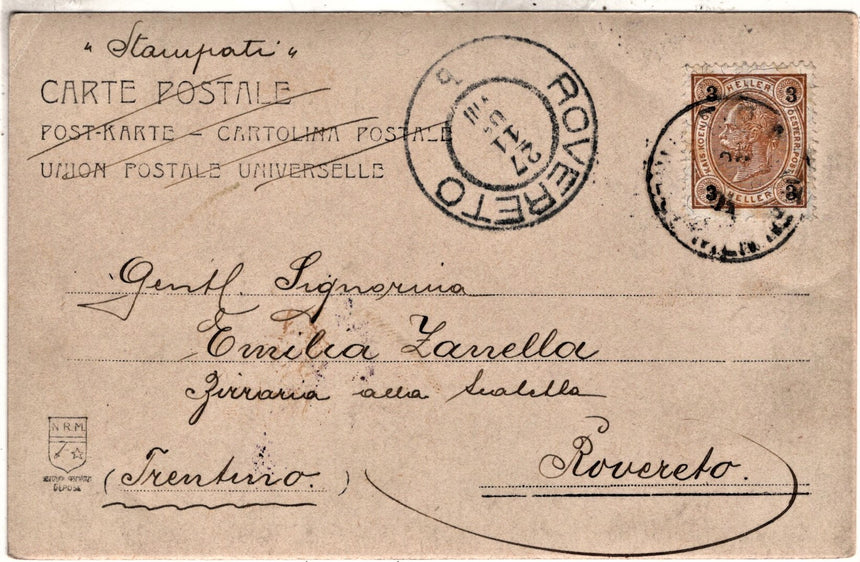 "Stampati"
CARTE POSTALE
POST-KARTE – CARTOLINA POSTALE
UNION POSTALE UNIVERSELLE
ROVERETO
27
11
VIII
b
3 HELLER 3
KAIS. KOENIGL. OESTERR. POST
3 HELLER 3
Gentl. Signorina
Emilia Zanella
Birraria alla Scaletta
N.R.M.
DÉPOSÉ
(Trentino.)
Rovereto.